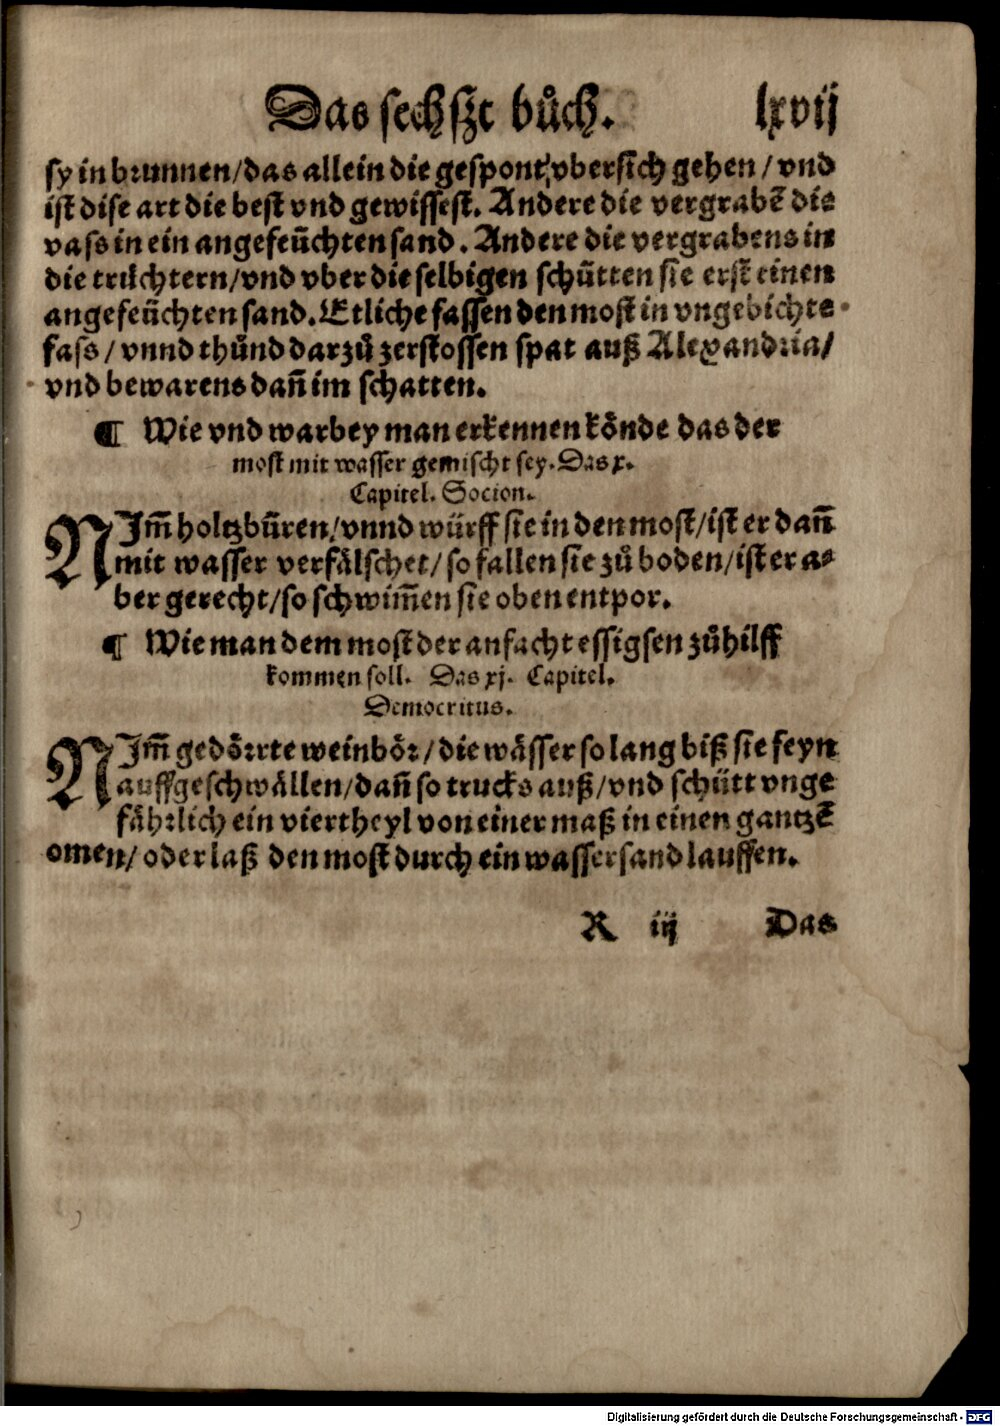 Das sechſzt bůch. lxvij
ſy in brunnen/das allein die geſpont vberſich gehen / vnd
iſt diſe art die beſt vnd gewiſſeſt. Andere die vergrabē die
vass in ein angefeüchten ſand. Andere die vergrabens in
die trüchtern/vnd vber die ſelbigen ſchütten ſie erſt einen
angefeüchten ſand. Etliche faſſen den moſt in vngebichte
faſs / vnnd thůnd darzů zerſtoſſen ſpat auß Alexandria/
vnd bewarens dañ im ſchatten.
¶ Wie vnd warbey man erkennen könde das der
moſt mit waſſer gemiſcht ſey. Das x.
Capitel. Socion.
NJm̄ holtzbüren/vnnd würff ſie in den moſt/iſt er dañ
mit waſſer verfälſchet/ſo fallen ſie zů boden/iſt er a⸗
ber gerecht/ſo ſchwim̄en ſie oben entpor.
¶ Wie man dem moſt der anfacht eſſigſen zůhilff
kommen ſoll. Das xj. Capitel.
Democritus.
NJm̄ gedörrte weinbör/die wäſſer ſo lang biß ſie feyn
auffgeſchwällen/dañ ſo trucks auß/vnd ſchütt vnge
fährlich ein viertheyl von einer maß in einen gantzē
omen/oder laß den moſt durch ein waſſerſand lauffen.
R iij Das
Digitalisierung gefördert durch die Deutsche Forschungsgemeinschaft - DFG